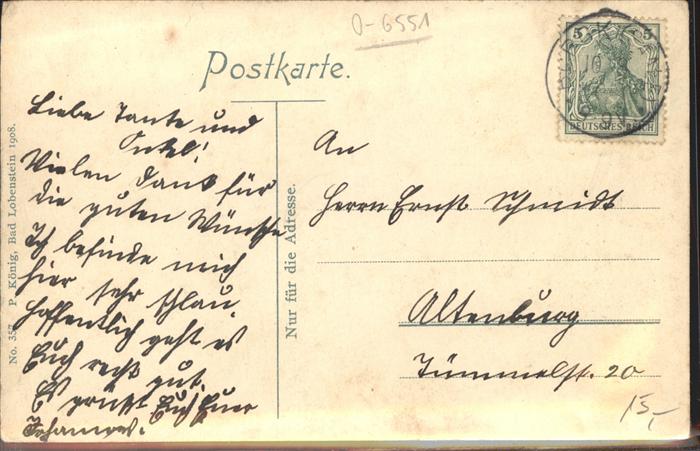 O-6551
Postkarte.
5 5
DEUTSCHES REICH
Liebe Tante und
Onkel!
Vielen Dank für
die guten Wünsche
Ich befinde mich
hier sehr schlau.
Hoffentlich geht es
Euch recht gut.
Es grüßt Euch Euer
Johannes.
No. 357 P. König, Bad Lobenstein 1908.
Nur für die Adresse.
An
Herrn Ernst Schmidt
Altenburg
Tümmelst. 20
15,-